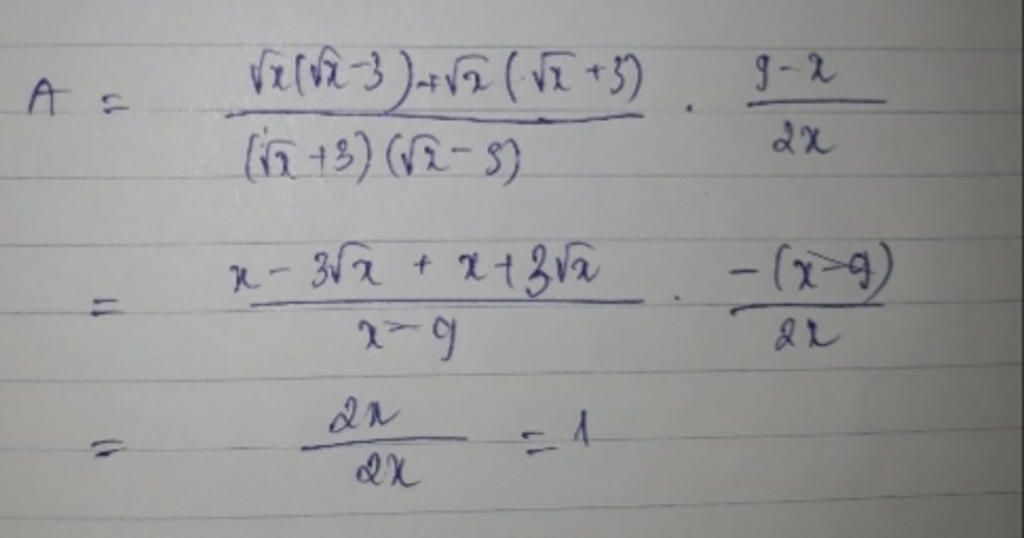 A = (√x(√x-3)+√x(√x+3))/((√x+3)(√x-3)) . (9-x)/(2x)
= (x-3√x + x+3√x)/(x-9) . (-(x-9))/(2x)
= (2x)/(2x) = 1